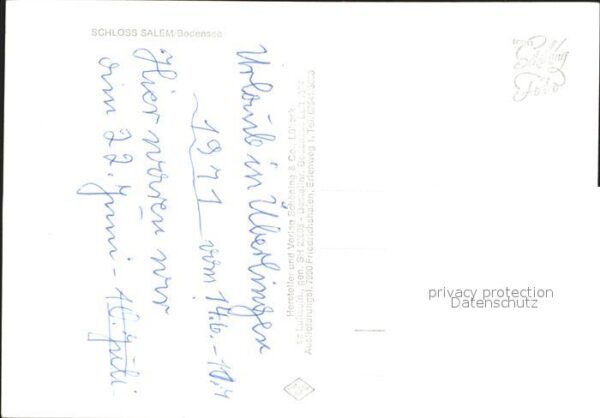 SCHLOSS SALEM/Bodensee
Urlaub in Überlingen
1971 vom 14.6.-10.7
Hier waren wir
am 22. Juni - 10. Juli
Hersteller und Verlag Schöning & Co., Lübeck
privacy protection
Datenschutz